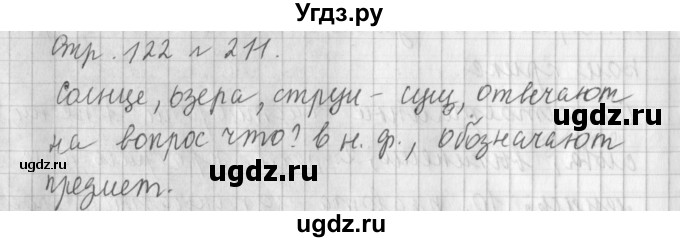 Угдз.ру
Стр. 122 № 211.
Солнце, озера, струи - сущ, отвечают
на вопрос что? в н. ф., обозначают
предмет.
ugdz.ru
ugdz.ru
ugdz.ru
ugdz.ru
ugdz.ru